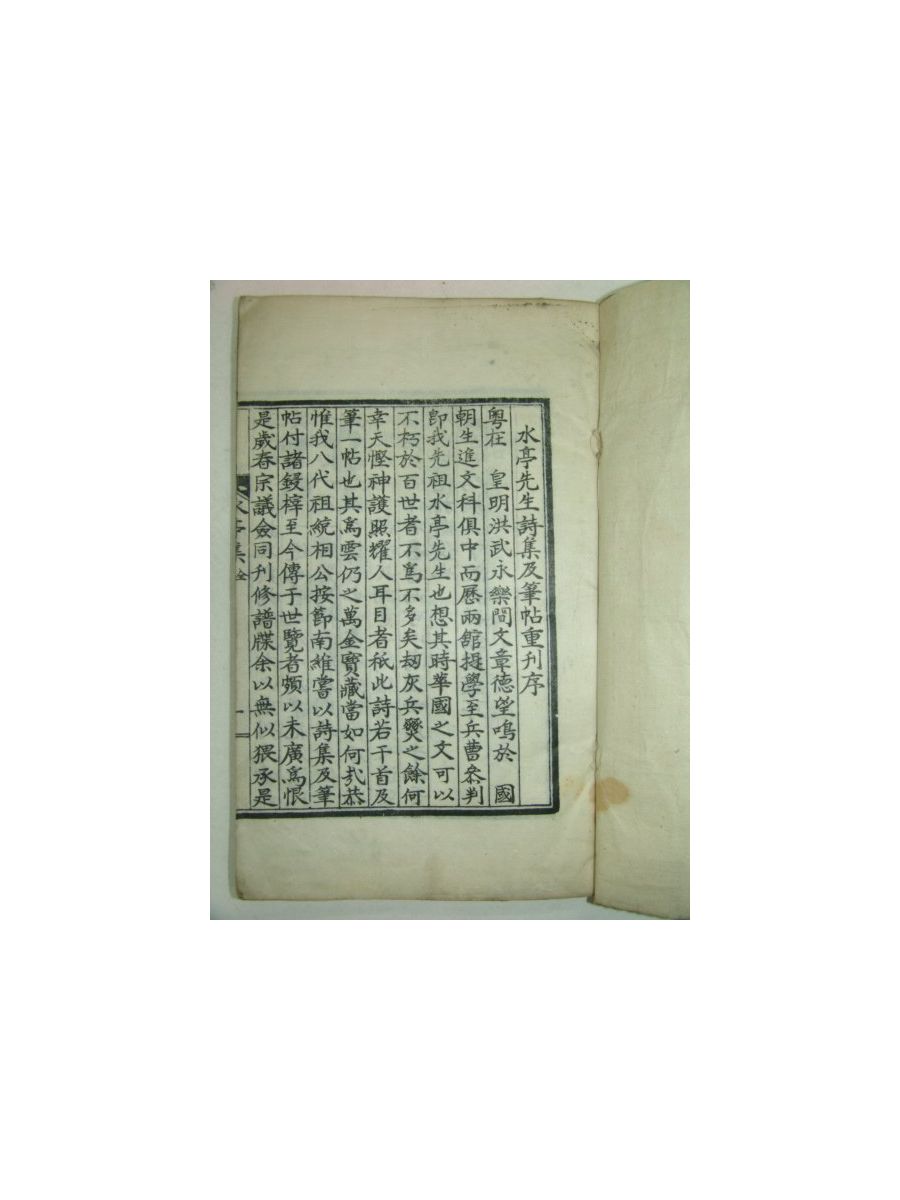 水亭先生詩集及筆帖重刊序
粤在 皇明洪武永樂間文章德望鳴於 國
朝生進文科俱中而歷兩館提學至兵曹叅判
卽我先祖水亭先生也想其時華國之文可以
不朽於百世者不爲不多矣刼灰兵燹之餘何
幸天慳神護照耀人耳目者秖此詩若干首及
筆一帖也其爲雲仍之萬金寶藏當如何㢤恭
惟我八代祖統相公按節南維嘗以詩集及筆
帖付諸鋟梓至今傳于世覽者頗以未廣爲恨
是歲春宗議僉同刊修譜牒余以無似猥承是
水亭集 全 一